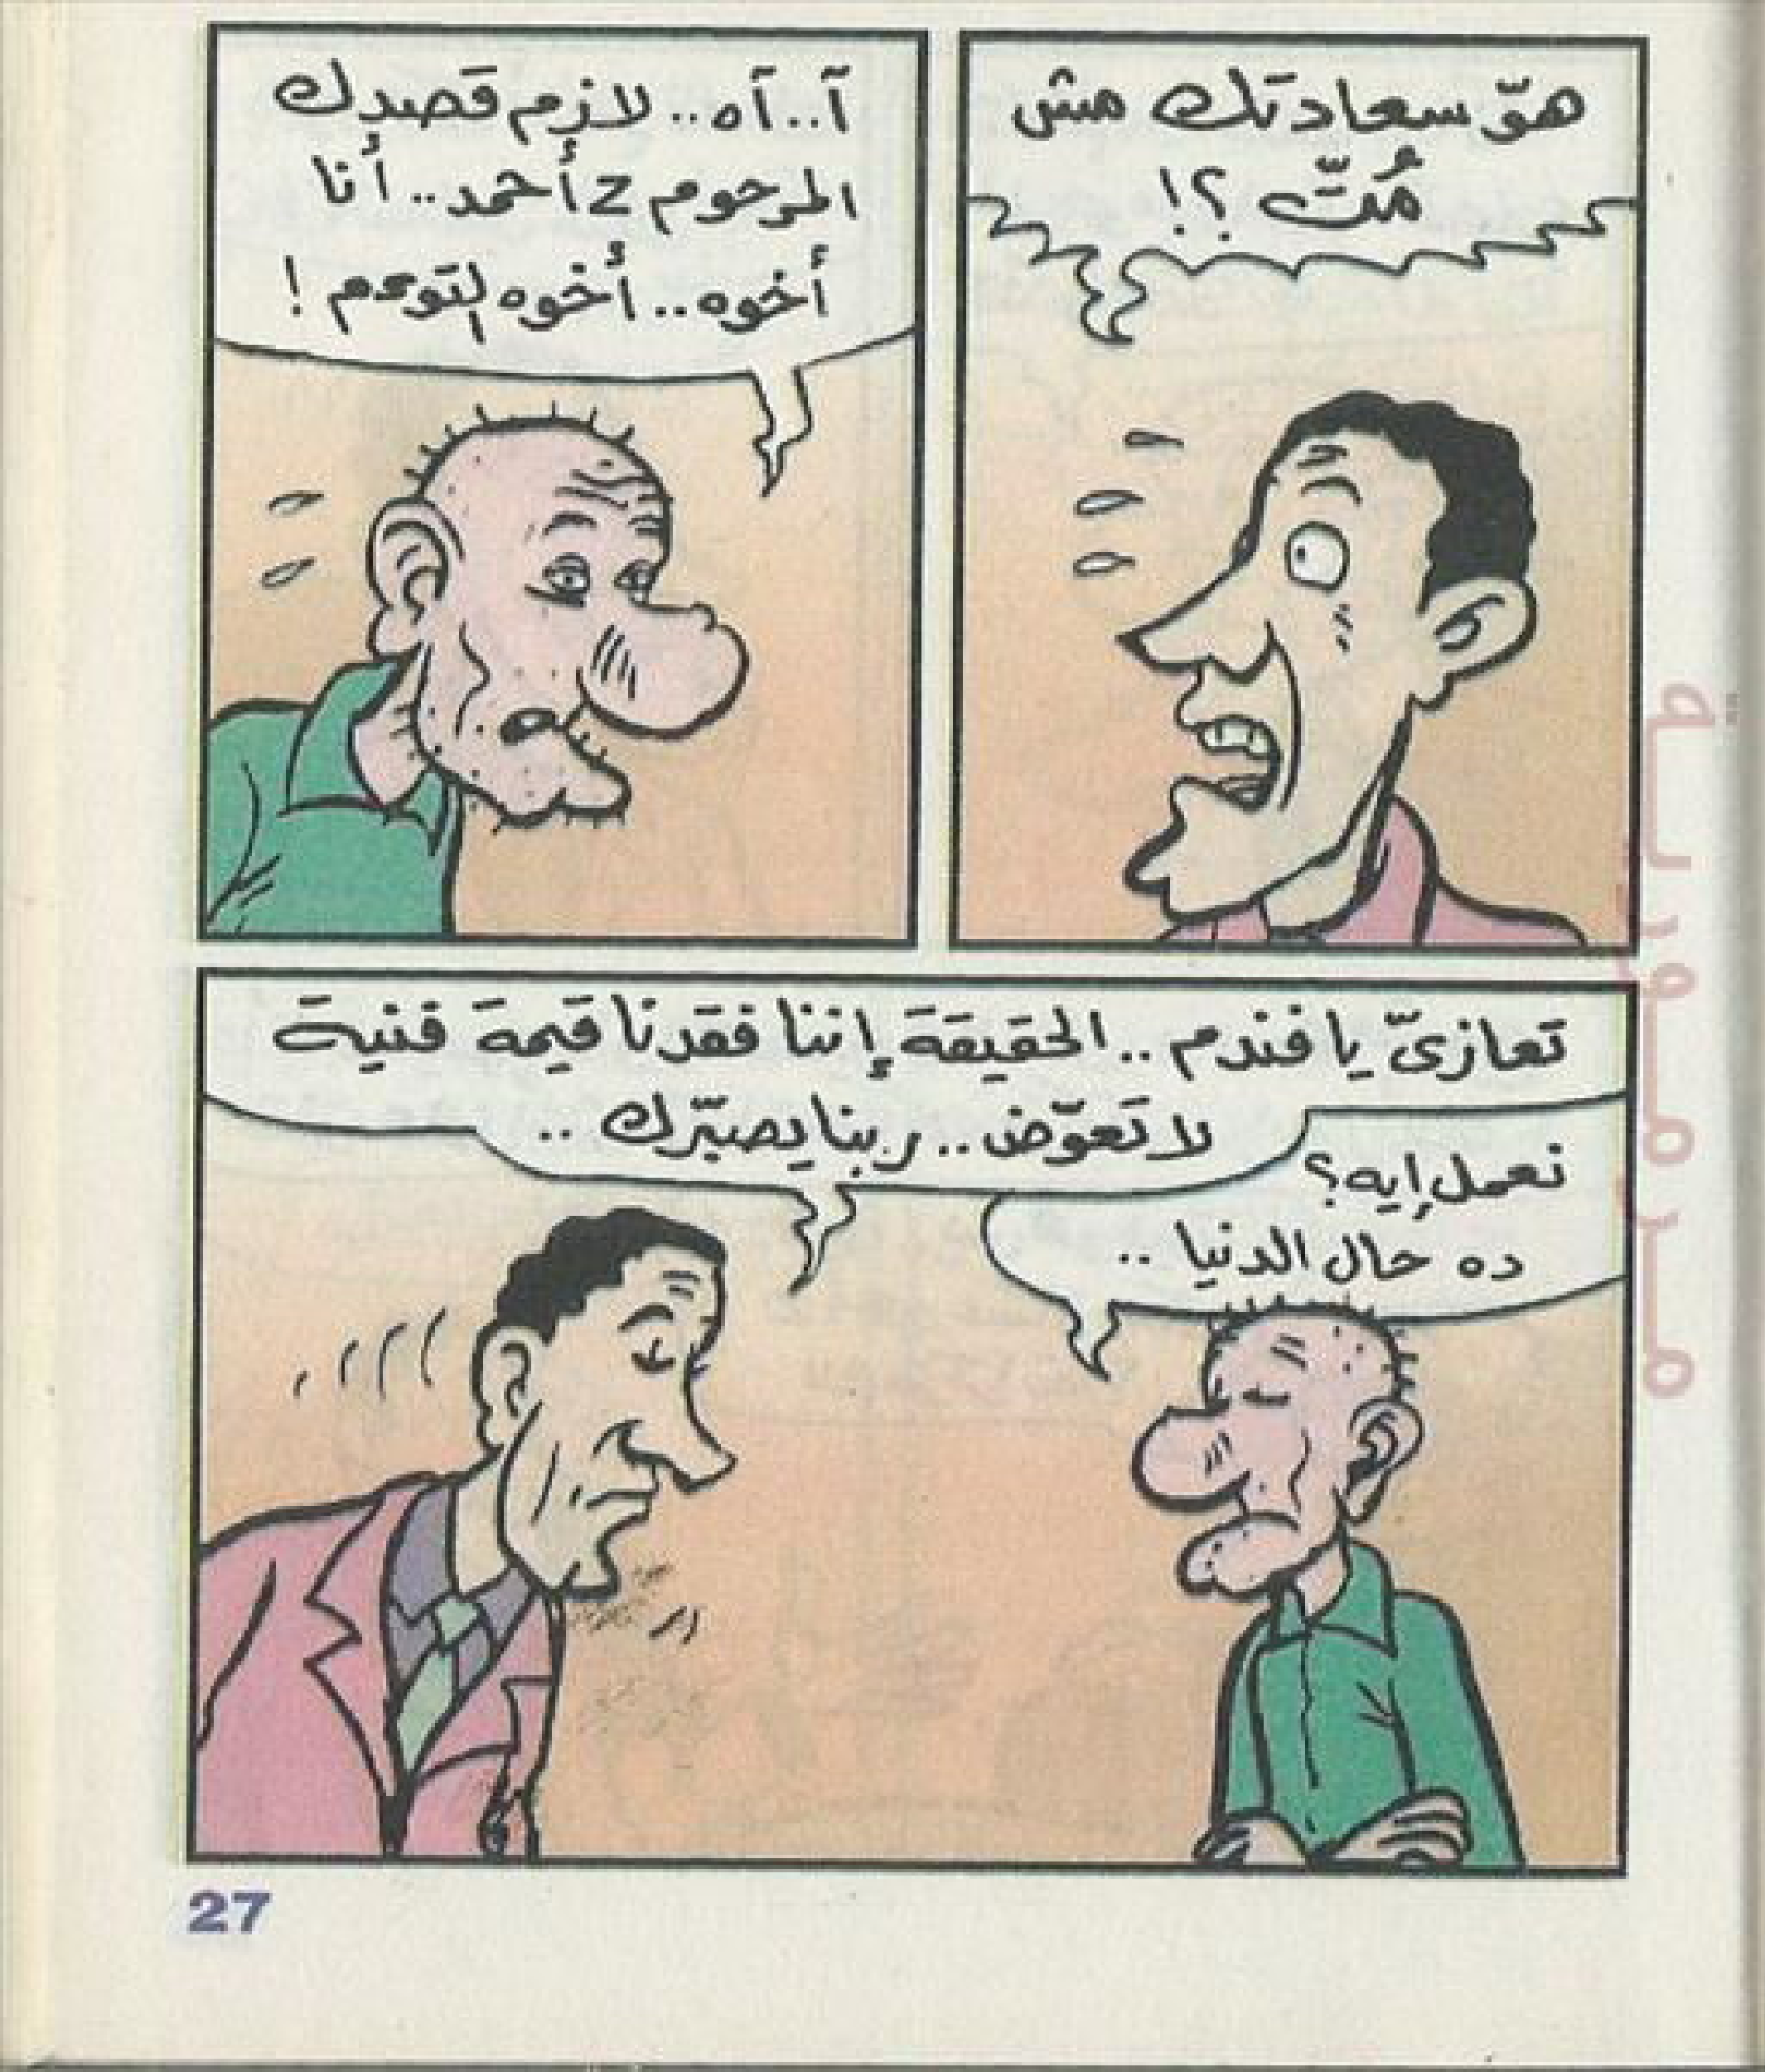 هوّ سعادتك مش
مُتّ ؟!
آ..آه.. لازم قصدك
المرحوم z أحمد.. أنا
أخوه.. أخوه التوءم !
تعازىّ يا فندم .. الحقيقة إننا فقدنا قيمة فنية
لا تعوّض.. ربنا يصبّرك ..
نعمل إيه؟
ده حال الدنيا ..
27